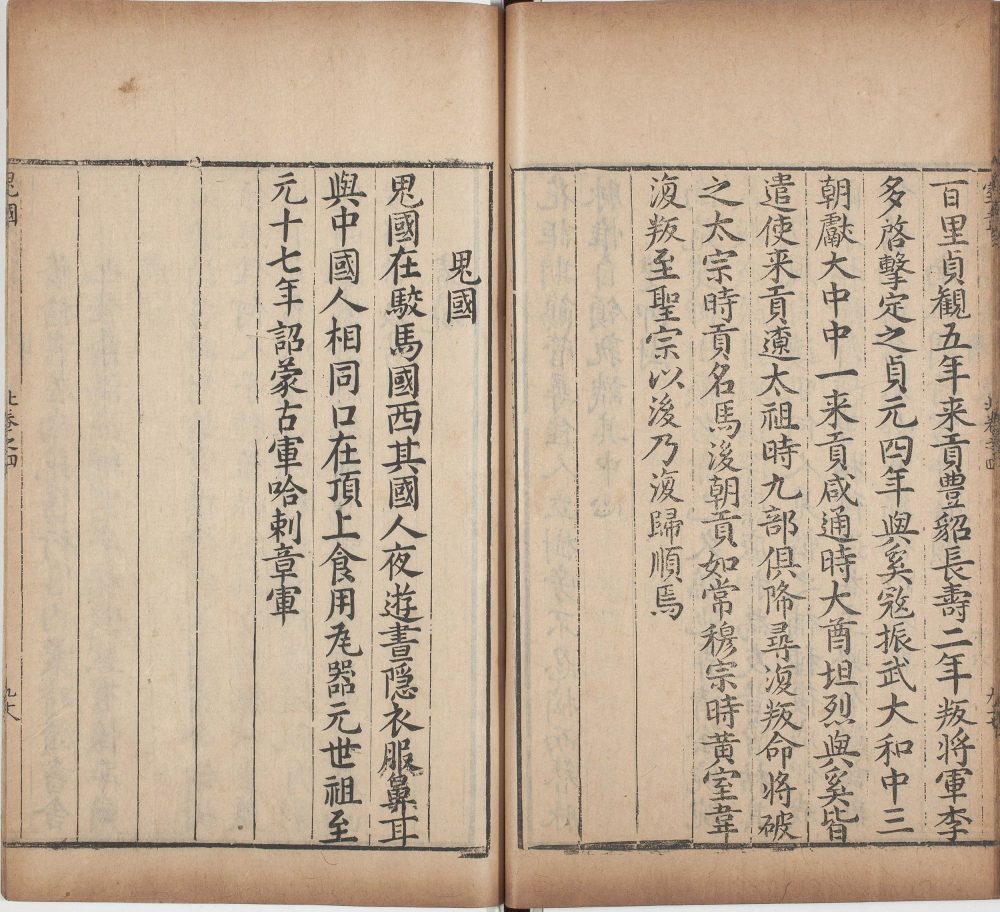 百里貞觀五年来貢豊貂長壽二年叛將軍李
多啓擊定之貞元四年與奚寇振武大和中三
朝獻大中中一来貢咸通時大酋坦烈與奚皆
遣使来貢遼太祖時九部俱降尋復叛命將破
之太宗時貢名馬後朝貢如常穆宗時黄室韋
復叛至聖宗以後乃復歸順焉
鬼國
鬼國在駮馬國西其國人夜遊晝隠衣服鼻耳
與中國人相同口在頂上食用瓦器元世祖至
元十七年詔蒙古軍哈剌章軍
鬼國
北卷之四